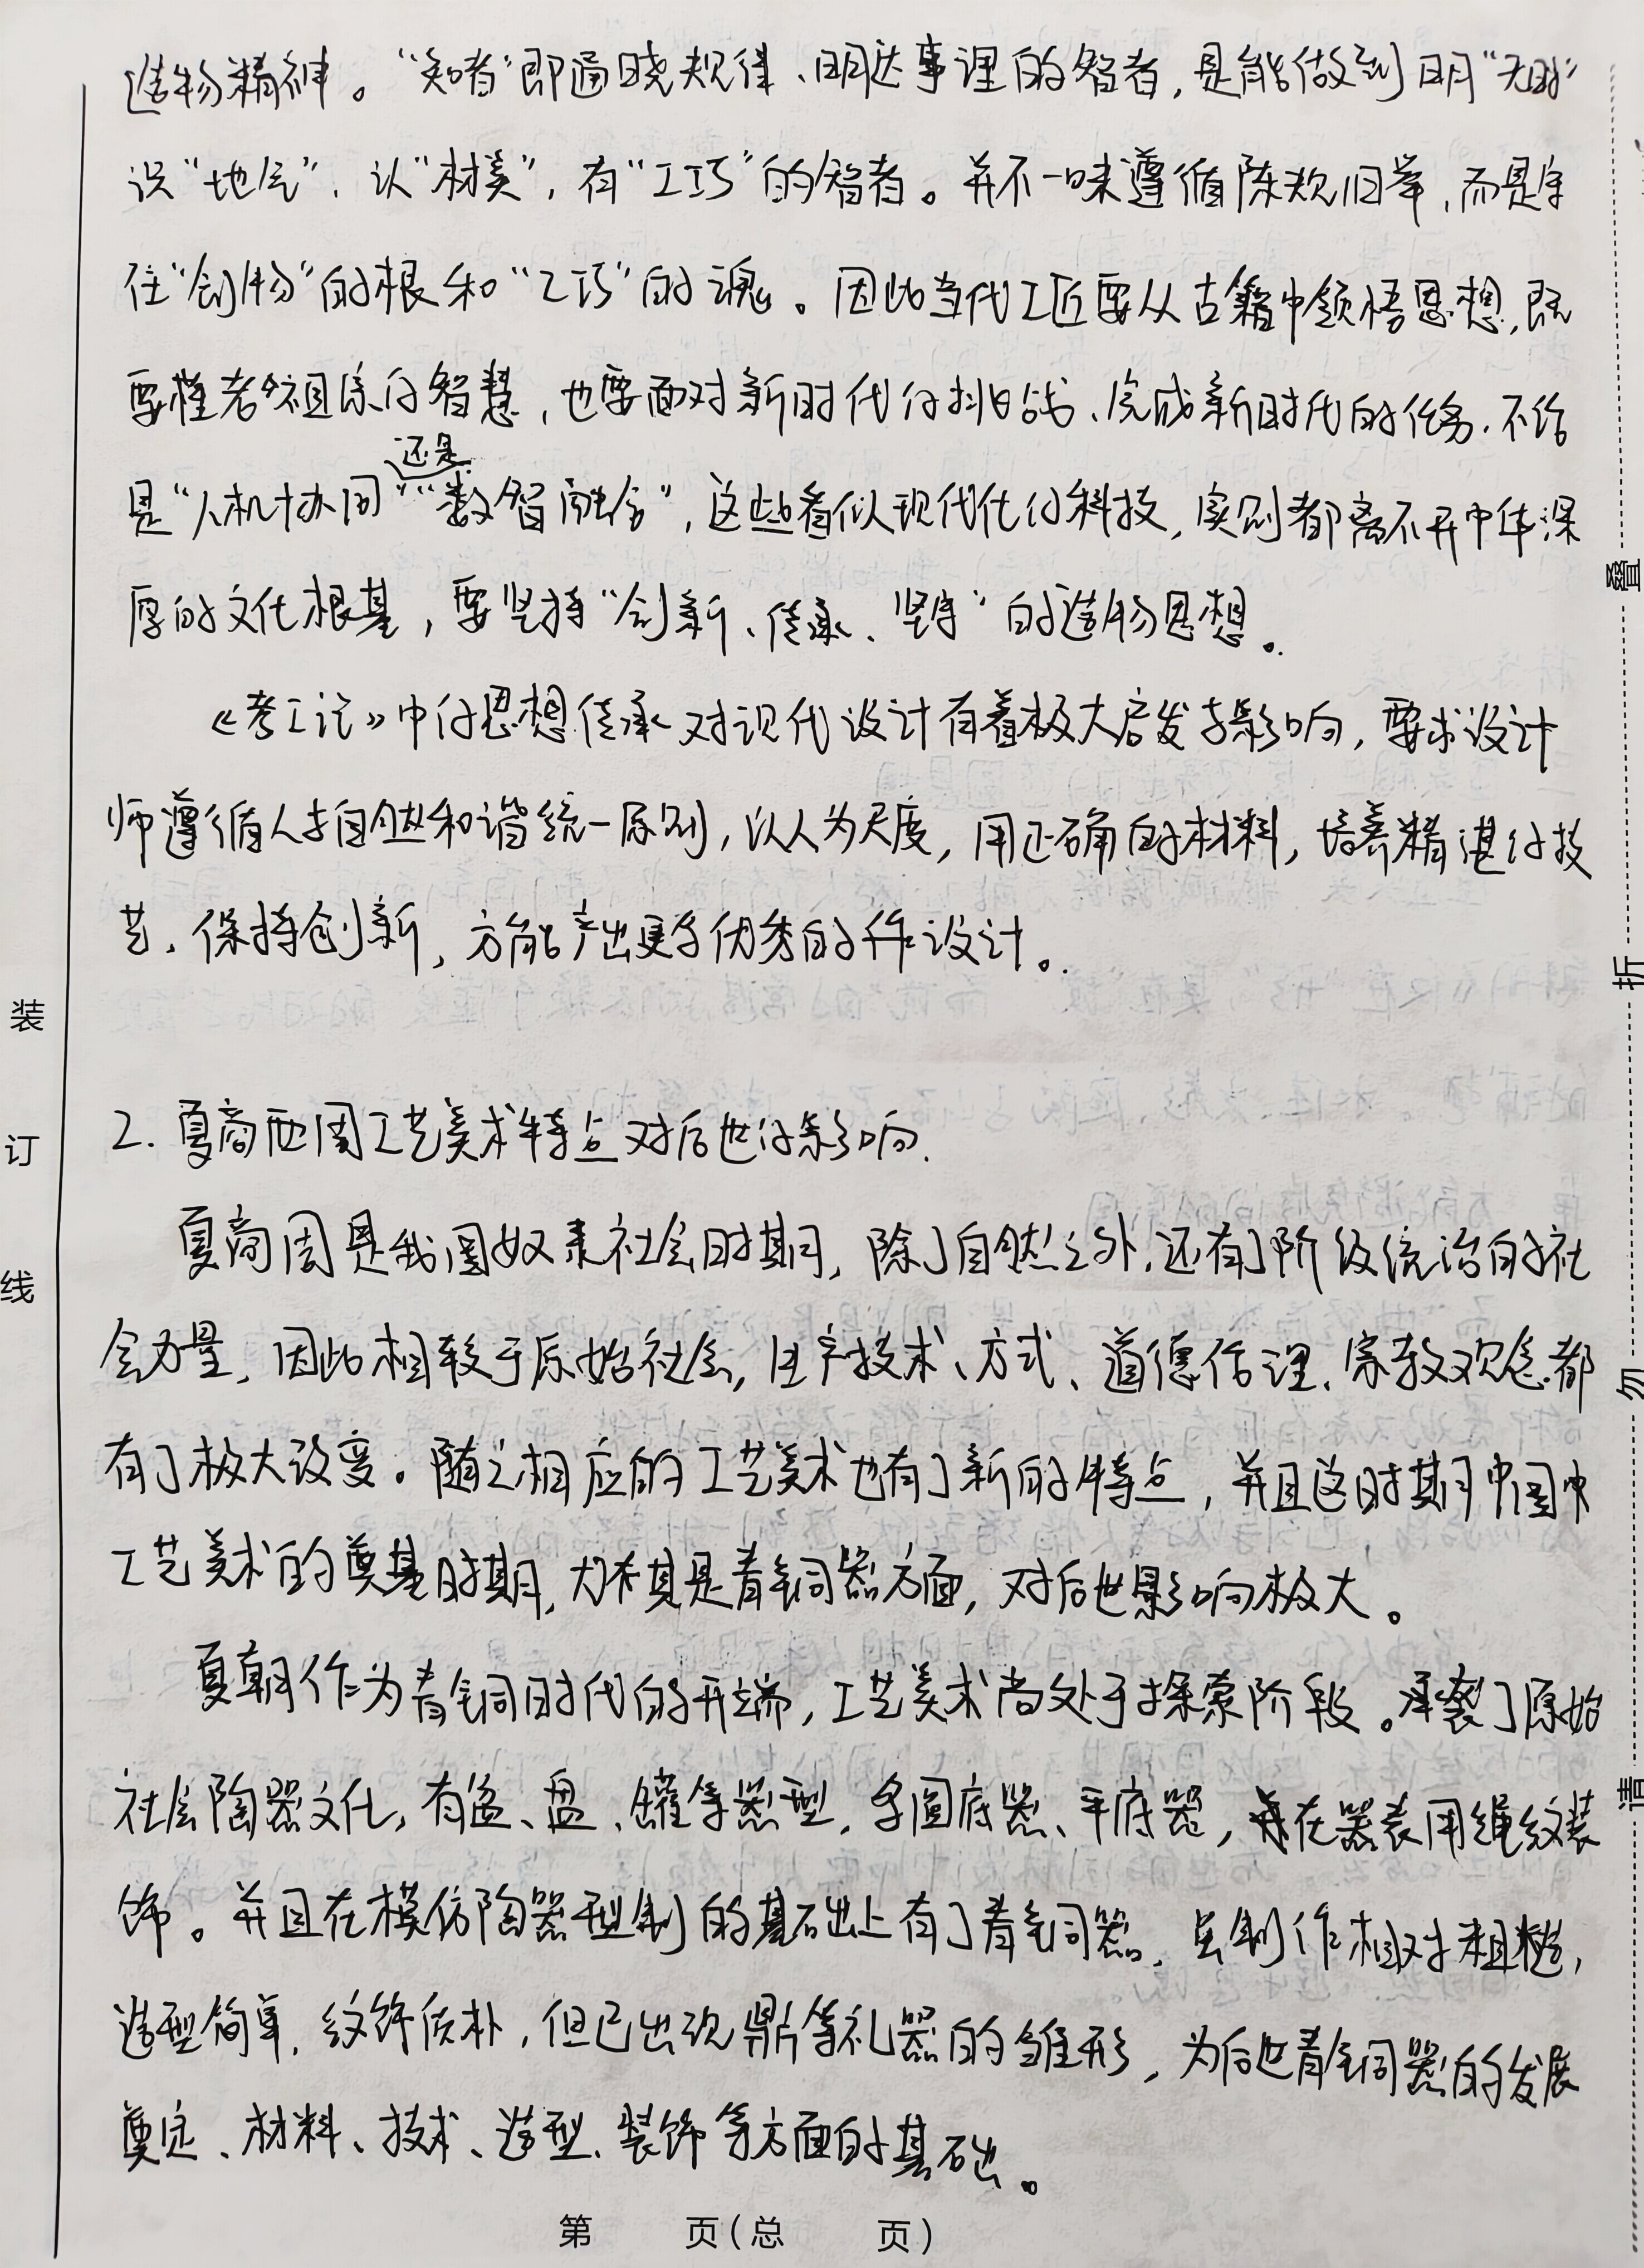 造物精神。“知者”即通晓规律、明达事理的智者，是能做到明“天时”
识“地气”、认“材美”，有“工巧”的智者。并不一味遵循陈规旧举，而是守
住“创物”的根和“工巧”的魂。因此当代工匠要从古籍中领悟思想，既
要懂老祖宗的智慧，也要面对新时代的挑战、完成新时代的任务.不论
还是
是“人机协同”“数智融合”，这些看似现代化的科技，实则都离不开中华深
厚的文化根基，要坚持“创新、传承、坚守”的造物思想。
《考工记》中的思想传承对现代设计有着极大启发与影响，要求设计
师遵循人与自然和谐统一原则，以人为尺度，用正确的材料，培养精湛的技
艺，保持创新，方能产出更多优秀的作设计。
2. 夏商西周工艺美术特点对后世的影响.
夏商周是我国奴隶社会时期，除了自然之外，还有了阶级统治的社
会力量，因此相较于原始社会，生产技术、方式、道德伦理、宗教观念都
有了极大改变。随之相应的工艺美术也有了新的特点，并且这时期中国中
工艺美术的奠基时期，尤其是青铜器方面，对后世影响极大。
夏朝作为青铜时代的开端，工艺美术尚处于探索阶段。承袭了原始
社会陶器文化，有盆、盘、罐等器型，多圆底器、平底器，在器表用绳纹装
饰。并且在模仿陶器型制的基础上有了青铜器，虽制作相对粗糙，
造型简单，纹饰质朴，但已出现鼎等礼器的雏形，为后世青铜器的发展
奠定、材料、技术、造型、装饰等方面的基础。
第 页（总 页）
装
订
线
叠
折
勿
请